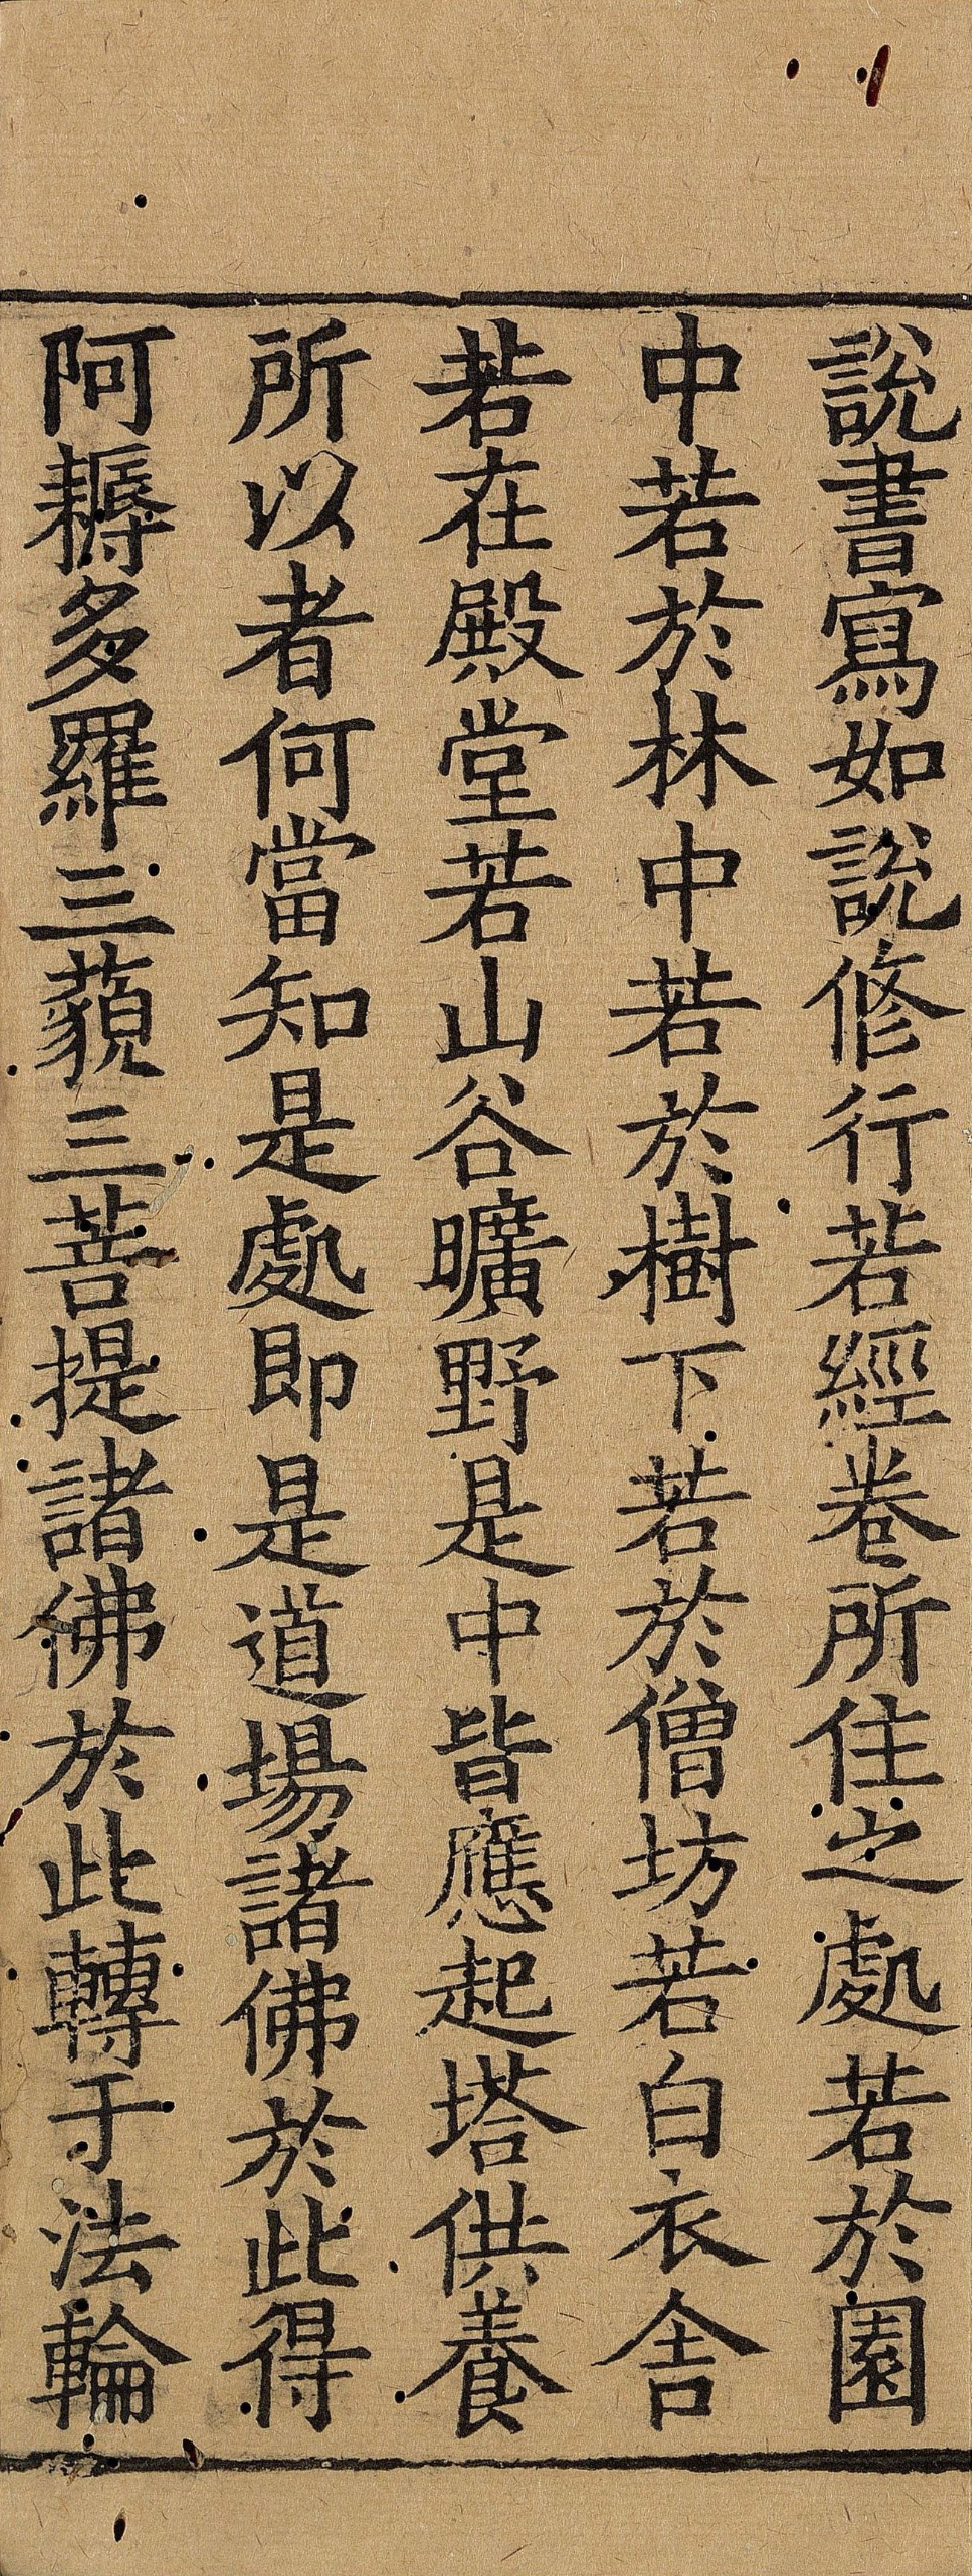 說書寫如說修行若經卷所住之處若於園
中若於林中若於樹下若於僧坊若白衣舍
若在殿堂若山谷曠野是中皆應起塔供養
所以者何當知是處即是道場諸佛於此得
阿耨多羅三藐三菩提諸佛於此轉于法輪